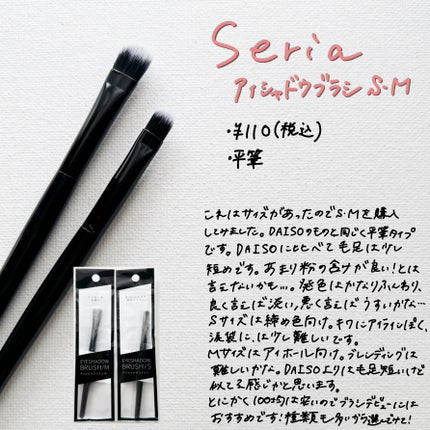 Seria
アイシャドウブラシ S・M
・¥110(税込)
・平筆
これはサイズがあったのでS・Mを購入
してみました。DAISOのものと同じく平筆タイプ
です。DAISOに比べて毛足は少し
短めです。あまり粉の含みが良い!とは
言えないかも…。発色はかなりふんわり、
良く言えば淡い、悪く言えばうすいかな…
Sサイズは締め色向け。キワにアイラインぽく、
涙袋には少し難しいです。
Mサイズはアイホール向け。ブレンディングは
難しいかな。DAISOよりは毛足短いけど
似てる感じかと思います。
とにかく100均は安いのでブラシデビューには
おすすめです!種類も多いから選んでみて!
EYESHADOW
BRUSH/M
EYESHADOW
BRUSH/S